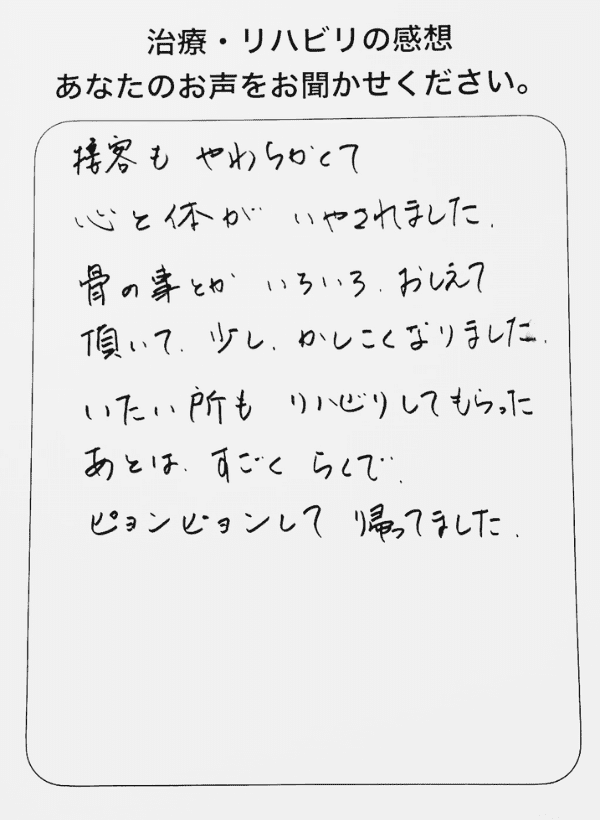 治療・リハビリの感想
あなたのお声をお聞かせください。
接客も やわらかくて
心と体が いやされました.
骨の事とか いろいろ. おしえて
頂いて. 少し. かしこくなりました.
いたい所も リハビリしてもらった
あとは. すごく らくで.
ピョンピョンして 帰ってました.